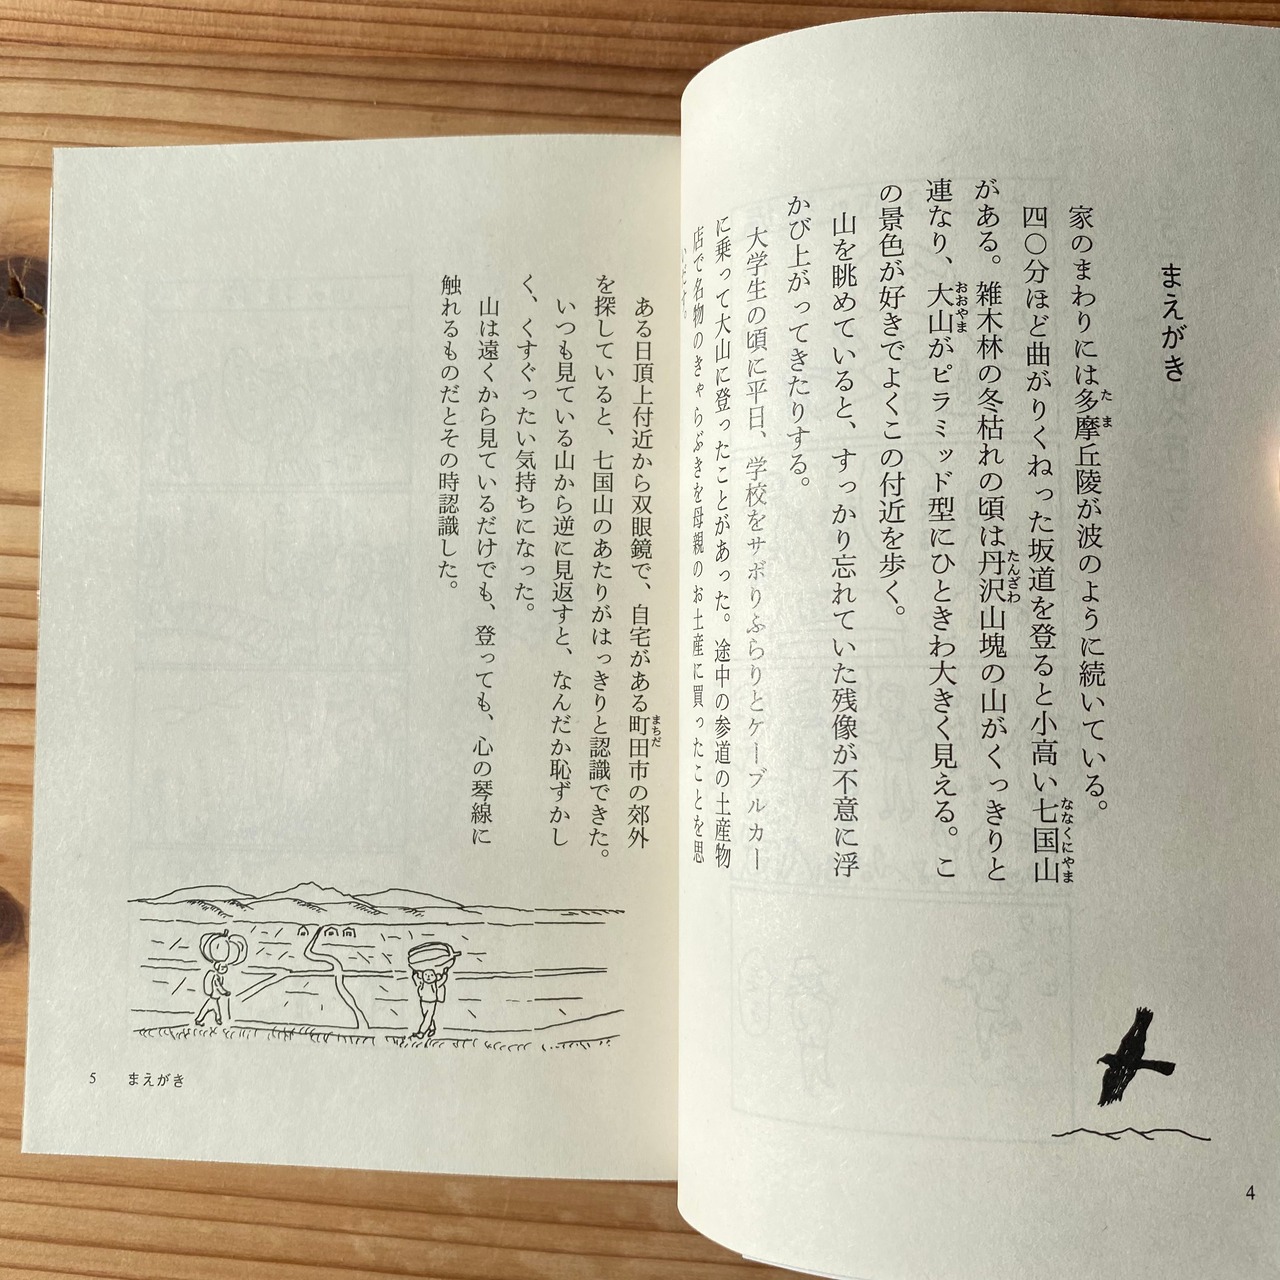 まえがき
家のまわりには多摩丘陵が波のように続いている。
四〇分ほど曲がりくねった坂道を登ると小高い七国山
がある。雑木林の冬枯れの頃は丹沢山塊の山がくっきりと
連なり、大山がピラミッド型にひときわ大きく見える。こ
の景色が好きでよくこの付近を歩く。
山を眺めていると、すっかり忘れていた残像が不意に浮
かび上がってきたりする。
大学生の頃に平日、学校をサボりふらりとケーブルカー
に乗って大山に登ったことがあった。途中の参道の土産物
店で名物のきゃらぶきを母親のお土産に買ったことを思
いだす。
4
ある日頂上付近から双眼鏡で、自宅がある町田市の郊外
を探していると、七国山のあたりがはっきりと認識できた。
いつも見ている山から逆に見返すと、なんだか恥ずかし
く、くすぐったい気持ちになった。
山は遠くから見ているだけでも、登っても、心の琴線に
触れるものだとその時認識した。
5 まえがき